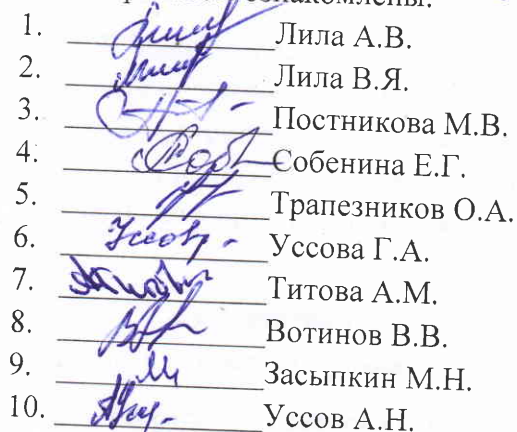 ознакомлены.
1. Лила А.В.
2. Лила В.Я.
3. Постникова М.В.
4. Собенина Е.Г.
5. Трапезников О.А.
6. Уссова Г.А.
7. Титова А.М.
8. Вотинов В.В.
9. Засыпкин М.Н.
10. Уссов А.Н.